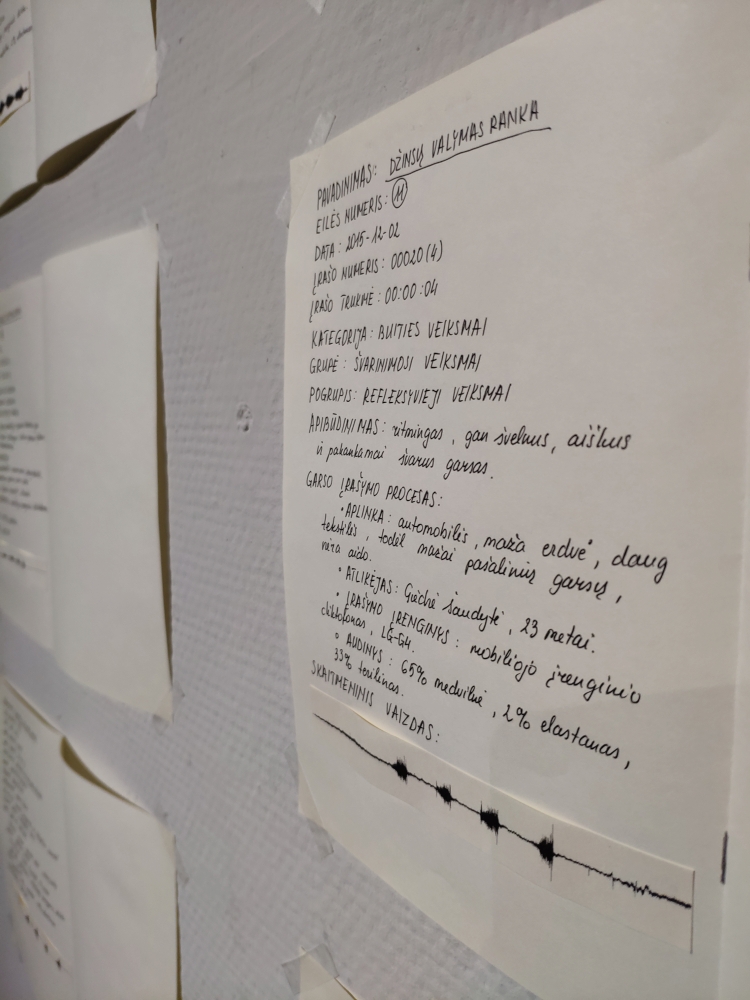 PAVADINIMAS: DŽINSŲ VALYMAS RANKA
EILĖS NUMERIS: 11
DATA: 2015-12-02
ĮRAŠO NUMERIS: 00020(4)
ĮRAŠO TRUKMĖ: 00:00:04
KATEGORIJA: BUITIES VEIKSMAI
GRUPĖ: ŠVARINIMOSI VEIKSMAI
POGRUPIS: REFLEKSYVIEJI VEIKSMAI
APIBŪDINIMAS: ritmingas, gan švelnus, aiškus
ir pakankamai švarus garsas.
GARSO ĮRAŠYMO PROCESAS:
• APLINKA: automobilis, maža erdvė, daug
tekstilės, todėl mažai pašalinių garsų,
nėra aido.
• ATLIKĖJAS: Giedrė Šaudytė, 23 metai.
• ĮRAŠYMO ĮRENGINYS: mobiliojo įrenginio
diktofonas, LG-G4.
• AUDINYS: 65% medvilnė, 2% elastanas,
33% terilinas.
SKAITMENINIS VAIZDAS: